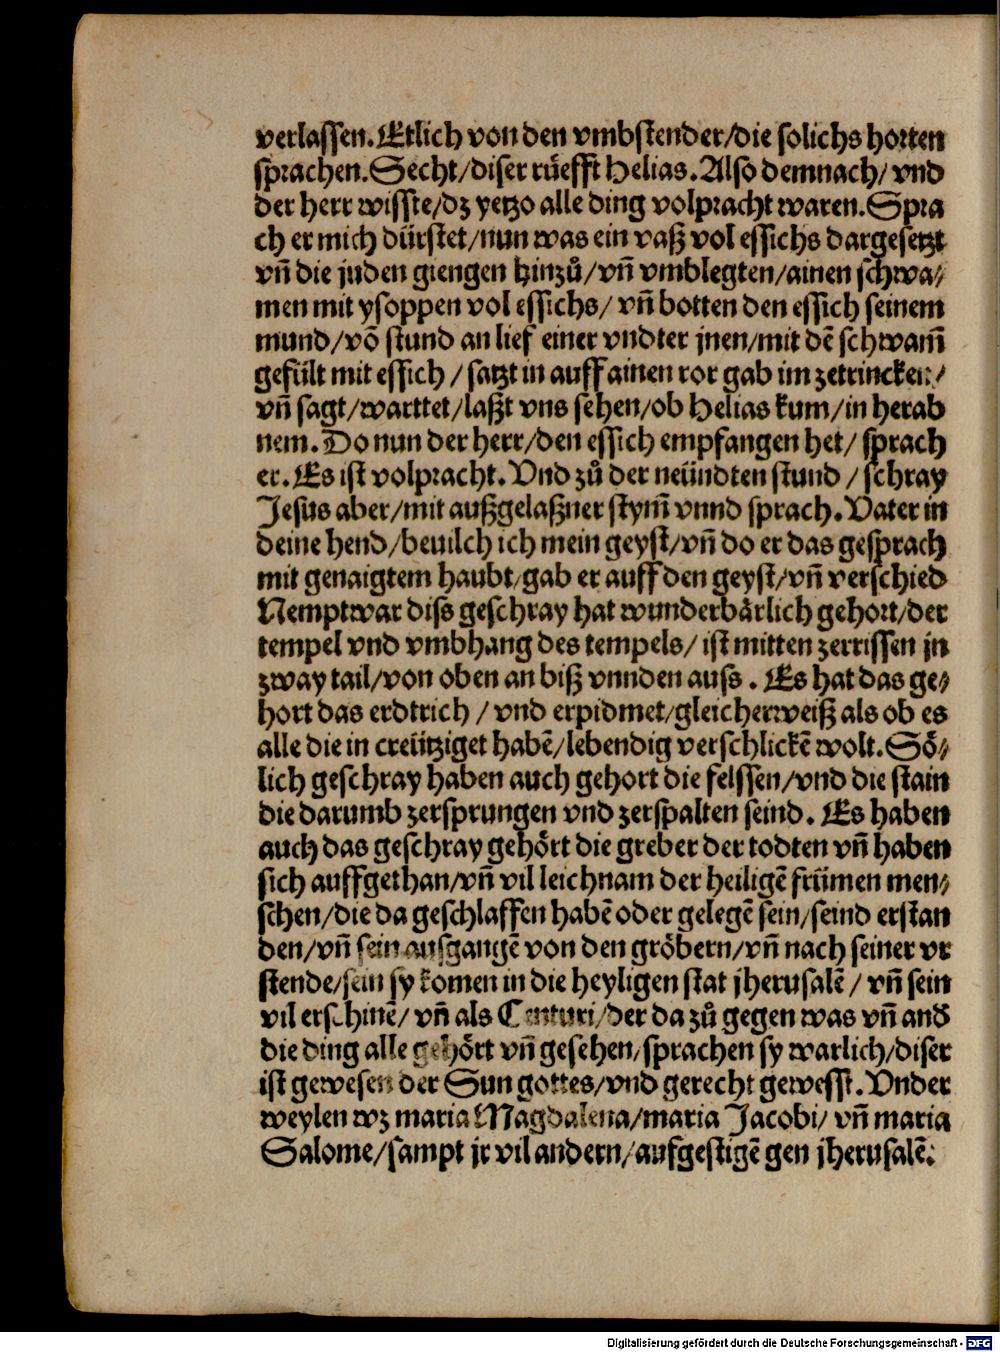 verlassen. Etlich von den vmbstender/die solichs horten
sprachen. Secht/diser rüefft Helias. Also demnach/ vnd
der herr wisste/dz yetzo alle ding volpracht waren. Spra
ch er mich dürstet/nun was ein vaß vol essichs dargesetzt
vn̄ die juden giengen hinzů/vn̄ vmblegten/ainen schwa⸗
men mit ysoppen vol essichs/ vn̄ botten den essich seinem
mund/vō stund an lief einer vndter jnen/mit dē schwam̄
gefült mit essich / satzt in auff ainen ror gab im zetrincken/
vn̄ sagt/warttet/laßt vns sehen/ob Helias kum/in herab
nem. Do nun der herr/den essich empfangen het/ sprach
er. Es ist volpracht. Vnd zů der neündten stund / schray
Jesus aber/mit außgelaßner stym̄ vnnd sprach. Vater in
deine hend/beuilch ich mein geyst/vn̄ do er das gesprach
mit genaigtem haubt/gab er auff den geyst/vn̄ verschied
Nemptwar diss geschray hat wunderbärlich gehort/der
tempel vnd vmbhang des tempels/ ist mitten zerrissen jn
zway tail/von oben an biß vnnden auss . Es hat das ge⸗
hort das erdtrich / vnd erpidmet/gleicherweiß als ob es
alle die in creützigt habē/lebendig verschlickē wolt. Sö⸗
lich geschray haben auch gehort die felssen/vnd die stain
die darumb zersprungen vnd zerspalten seind. Es haben
auch das geschray gehört die greber der todten vn̄ haben
sich auffgethan/vn̄ vil leichnam der heiligē frümen men⸗
schen/die da geschlaffen habē oder gelegē sein/seind erstan
den/vn̄ sein ausgangē von den gröbern/vn̄ nach seiner vr
stende/sein sy komen in die heyligen stat jherusalē / vn̄ sein
vil erschinē/ vn̄ als Centuri/der da zů gegen was vn̄ and̄
die ding alle gehört vn̄ gesehen/sprachen sy warlich/diser
ist gewesen der Sun gottes/vnd gerecht gewesst. Vnder
weylen wz maria Magdalena/maria Jacobi/ vn̄ maria
Salome/sampt jr vil andern/aufgestigē gen jherusalē.
Digitalisierung gefördert durch die Deutsche Forschungsgemeinschaft - DFG